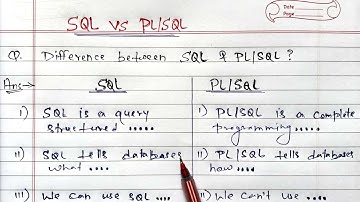 Date
Page
SQL VS PL/SQL
Q. Difference between SQL & PL/SQL ?
Ans→ SQL PL/SQL
i) SQL is a query i) PL/SQL is a complete
structured ..... programming.....
ii) SQL tells databases ii) PL/SQL tells databases
what .... how ....
iii) We can use SQL .... iii) We can't use ....